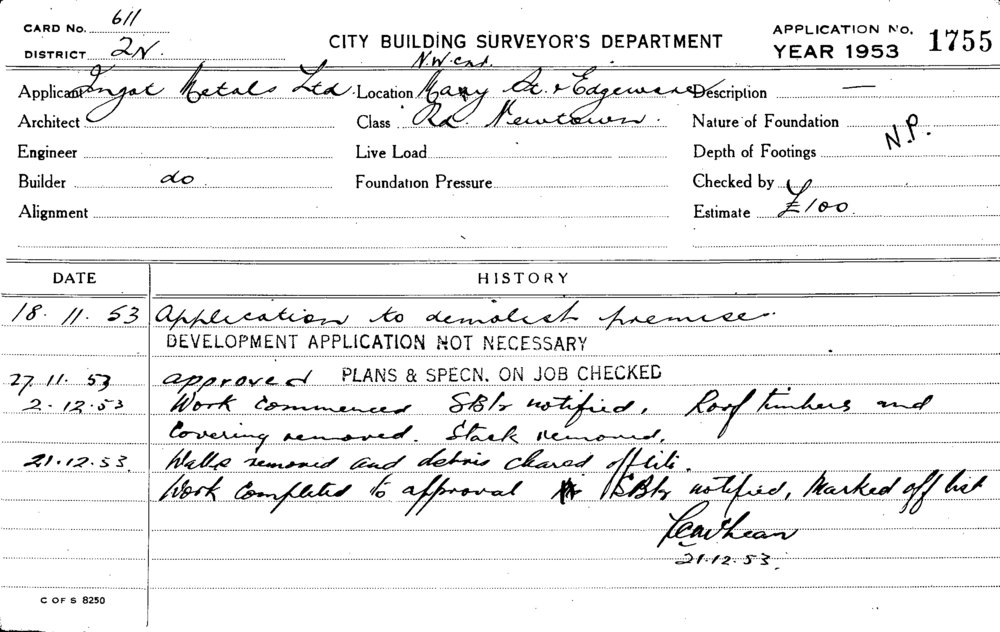 CARD No. 611
DISTRICT 2N.
CITY BUILDING SURVEYOR'S DEPARTMENT
APPLICATION No. 1755
YEAR 1953
N.W. cnr.
Applicant Ingot Metals Ltd. Location Mary St. & Edgeware Description —
Architect Class Rd. Newtown. Nature of Foundation
Engineer Live Load Depth of Footings N.P.
Builder do Foundation Pressure Checked by
Alignment Estimate £100.
DATE HISTORY
18. 11. 53 Application to demolish premises.
DEVELOPMENT APPLICATION NOT NECESSARY
27. 11. 53 approved PLANS & SPECN. ON JOB CHECKED
2. 12. 53 Work commenced notified. Roof timbers and
Covering removed. Stack removed.
21. 12. 53. Walls removed and debris cleared off site.
Work completed to approval notified, Marked off list
21. 12. 53.
C OF S 8250